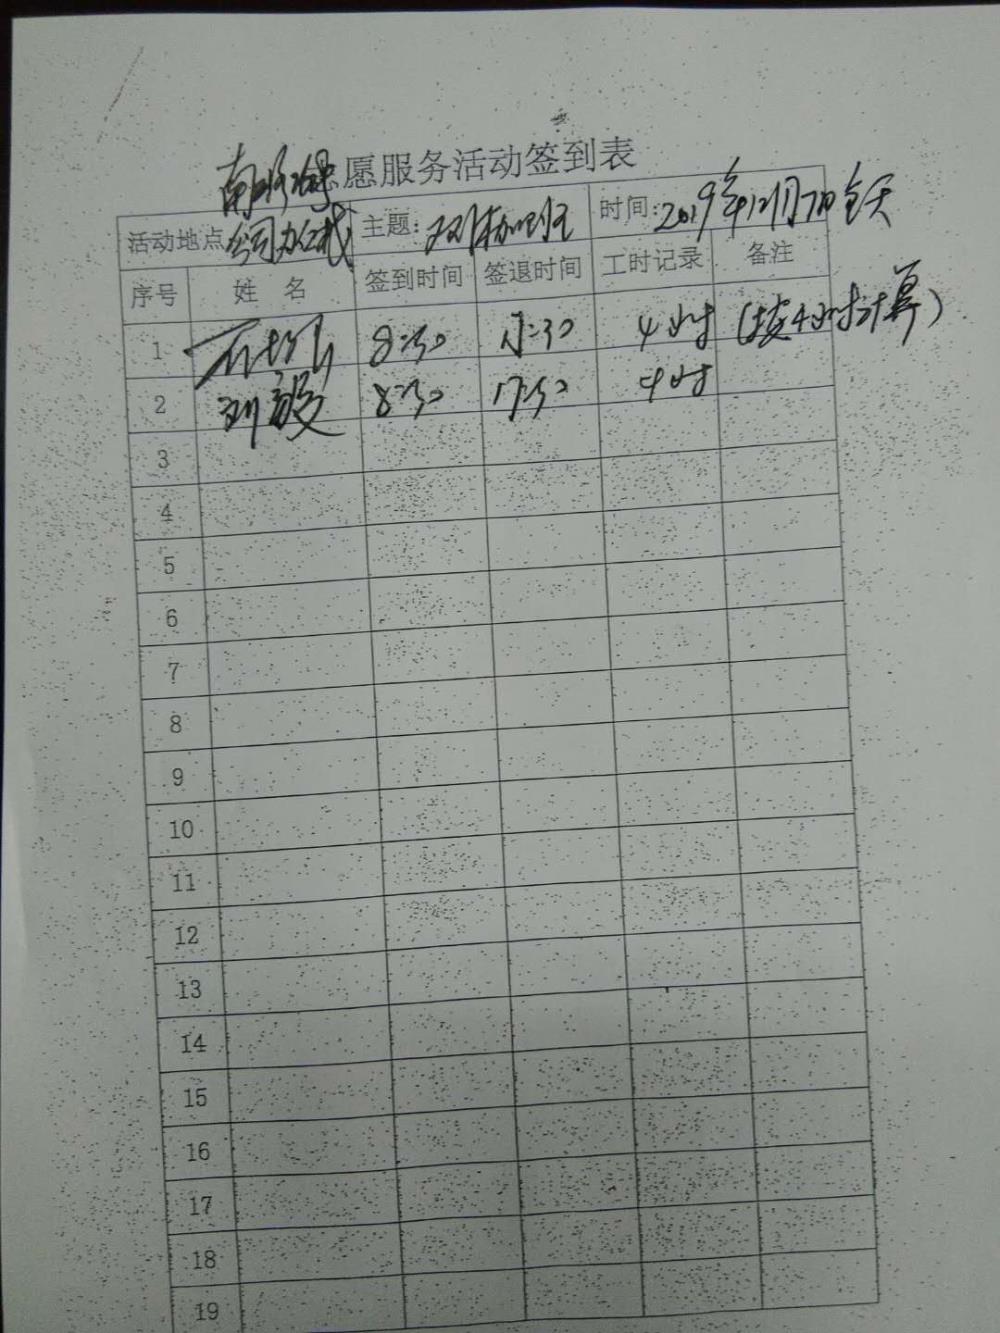 愿服务活动签到表
活动地点 公司办公楼 主题: 双休加班 时间: 2019年12月7日全天
序号 姓 名 签到时间 签退时间 工时记录 备注
1 8:30 17:30 4小时 (按4小时计算)
2 刘毅 8:30 17:30 4小时
3
4
5
6
7
8
9
10
11
12
13
14
15
16
17
18
19